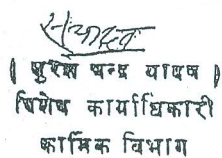 ( सुरेश चन्द्र यादव )
विशेष कार्याधिकारी
कार्मिक विभाग